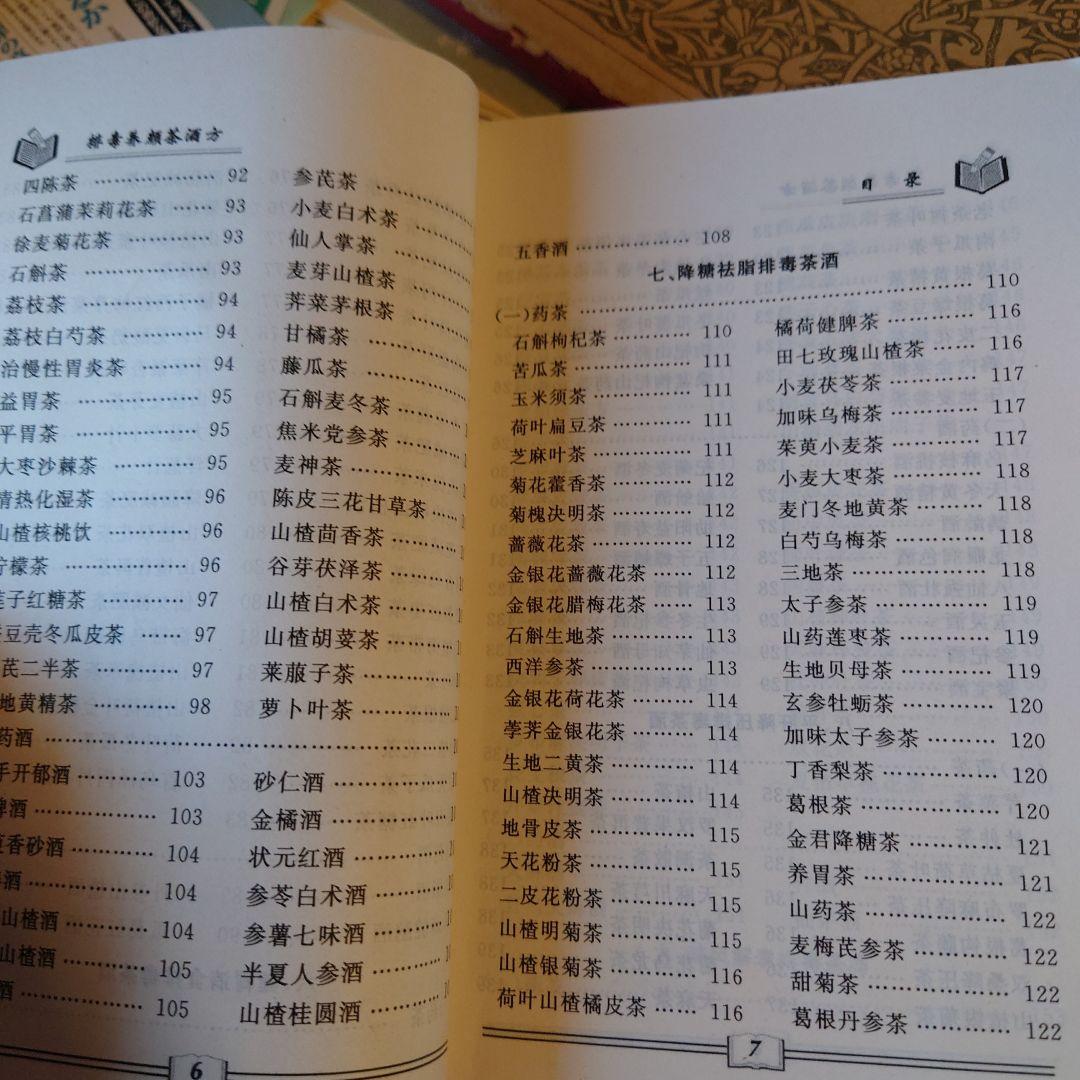 排毒养颜茶酒方
四陈茶 ………………… 92
石菖蒲茉莉花茶 …… 93
徐麦菊花茶 ………… 93
石斛茶 ……………… 93
荔枝茶 ……………… 94
荔枝白芍茶 ………… 94
治慢性胃炎茶 ……… 94
益胃茶 ……………… 95
平胃茶 ……………… 95
大枣沙棘茶 ………… 95
清热化湿茶 ………… 96
山楂核桃饮 ………… 96
柠檬茶 ……………… 96
莲子红糖茶 ………… 97
豆壳冬瓜皮茶 …… 97
芪二半茶 ………… 97
地黄精茶 ………… 98
药酒 …………………………………
手开郁酒 ………… 103
脾酒 ……………… 103
香砂酒 ………… 104
酒 ……………… 104
山楂酒 ………… 104
山楂酒 ………… 105
酒 ……………… 105
参芪茶 ……………
小麦白术茶 ………
仙人掌茶 …………
麦芽山楂茶 ………
荠菜茅根茶 ………
甘橘茶 ……………
藤瓜茶 ……………
石斛麦冬茶 ………
焦米党参茶 ………
麦神茶 ……………
陈皮三花甘草茶 ……
山楂茴香茶 ………
谷芽茯泽茶 ………
山楂白术茶 ………
山楂胡荽茶 ………
莱菔子茶 …………
萝卜叶茶 …………
砂仁酒 ……………
金橘酒 ……………
状元红酒 …………
参苓白术酒 ………
参薯七味酒 ………
半夏人参酒 ………
山楂桂圆酒 ………
6
目 录
五香酒 ……………… 108
七、降糖祛脂排毒茶酒
(一)药茶 ………………………………… 110
石斛枸杞茶 ………… 110
苦瓜茶 ……………… 111
玉米须茶 …………… 111
荷叶扁豆茶 ………… 111
芝麻叶茶 …………… 111
菊花藿香茶 ………… 112
菊槐决明茶 ………… 112
蔷薇花茶 …………… 112
金银花蔷薇花茶 …… 112
金银花腊梅花茶 …… 113
石斛生地茶 ………… 113
西洋参茶 …………… 113
金银花荷花茶 ……… 114
荸荠金银花茶 ……… 114
生地二黄茶 ………… 114
山楂决明茶 ………… 114
地骨皮茶 …………… 115
天花粉茶 …………… 115
二皮花粉茶 ………… 115
山楂明菊茶 ………… 115
山楂银菊茶 ………… 116
荷叶山楂橘皮茶 …… 116
橘荷健脾茶 ………… 116
田七玫瑰山楂茶 …… 116
小麦茯苓茶 ………… 117
加味乌梅茶 ………… 117
茱萸小麦茶 ………… 117
小麦大枣茶 ………… 118
麦门冬地黄茶 ……… 118
白芍乌梅茶 ………… 118
三地茶 ……………… 118
太子参茶 …………… 119
山药莲枣茶 ………… 119
生地贝母茶 ………… 119
玄参牡蛎茶 ………… 120
加味太子参茶 ……… 120
丁香梨茶 …………… 120
葛根茶 ……………… 120
金君降糖茶 ………… 121
养胃茶 ……………… 121
山药茶 ……………… 122
麦梅芪参茶 ………… 122
甜菊茶 ……………… 122
葛根丹参茶 ………… 122
7